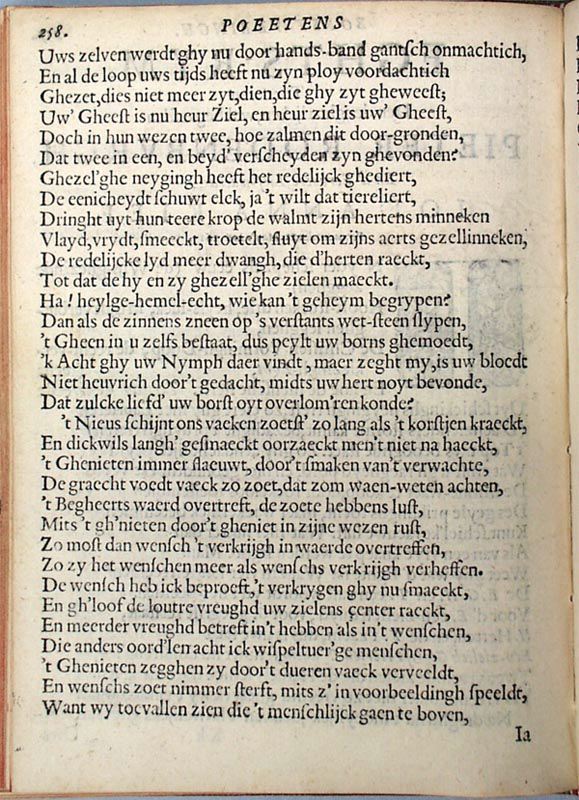 258.
POEETENS
Uws zelven werdt ghy nu door hands-band gantsch onmachtich,
En al de loop uws tijds heeft nu zyn ploy voordachtich
Ghezet, dies niet meer zyt, dien, die ghy zyt gheweest;
Uw' Gheest is nu heur Ziel, en heur ziel is uw' Gheest,
Doch in hun wezen twee, hoe zalmen dit door-gronden,
Dat twee in een, en beyd' verscheyden zyn ghevonden?
Ghezel'ghe neygingh heeft het redelijck ghediert,
De eenicheydt schuwt elck, ja 't wilt dat tiereliert,
Dringht uyt hun teere krop de walmt zijn hertens minneken
Vlayd, vrydt, smeeckt, troetelt, fluyt om zijns aerts gezellinneken,
De redelijcke lyd meer dwangh, die d'herten raeckt,
Tot dat de hy en zy ghezell'ghe zielen maeckt.
Ha! heylge-hemel-echt, wie kan 't geheym begrypen?
Dan als de zinnens zneen op 's verstants wet-steen slypen,
't Gheen in u zelfs bestaat, dus peylt uw borns ghemoedt,
'k Acht ghy uw Nymph daer vindt, maer zeght my, is uw bloedt
Niet heuvrich door't gedacht, midts uw hert noyt bevonde,
Dat zulcke liefd' uw borst oyt overlom'ren konde?
't Nieus schijnt ons vaeken zoetst' zo lang als 't korstjen kraeckt,
En dickwils langh' gesmaeckt oorzaeckt men't niet na haeckt,
't Ghenieten immer slaeuwt, door't smaken van't verwachte,
De graecht voedt vaeck zo zoet, dat zom waen-weten achten,
't Begheerts waerd overtreft, de zoete hebbens lust,
Mits 't gh'nieten door't gheniet in zijne wezen rust,
Zo most dan wensch 't verkrijgh in waerde overtreffen,
Zo zy het wenschen meer als wenschs verkrijgh verheffen.
De wensch heb ick beproeft, 't verkrygen ghy nu smaeckt,
En gh'loof de loutre vreughd uw zielens çenter raeckt,
En meerder vreughd betreft in't hebben als in't wenschen,
Die anders oord'len acht ick wispeltuer'ge menschen,
't Ghenieten zegghen zy door't dueren vaeck verveeldt,
En wenschs zoet nimmer sterft, mits z' in voorbeeldingh speeldt,
Want wy toevallen zien die 't menschlijck gaen te boven,
Ia